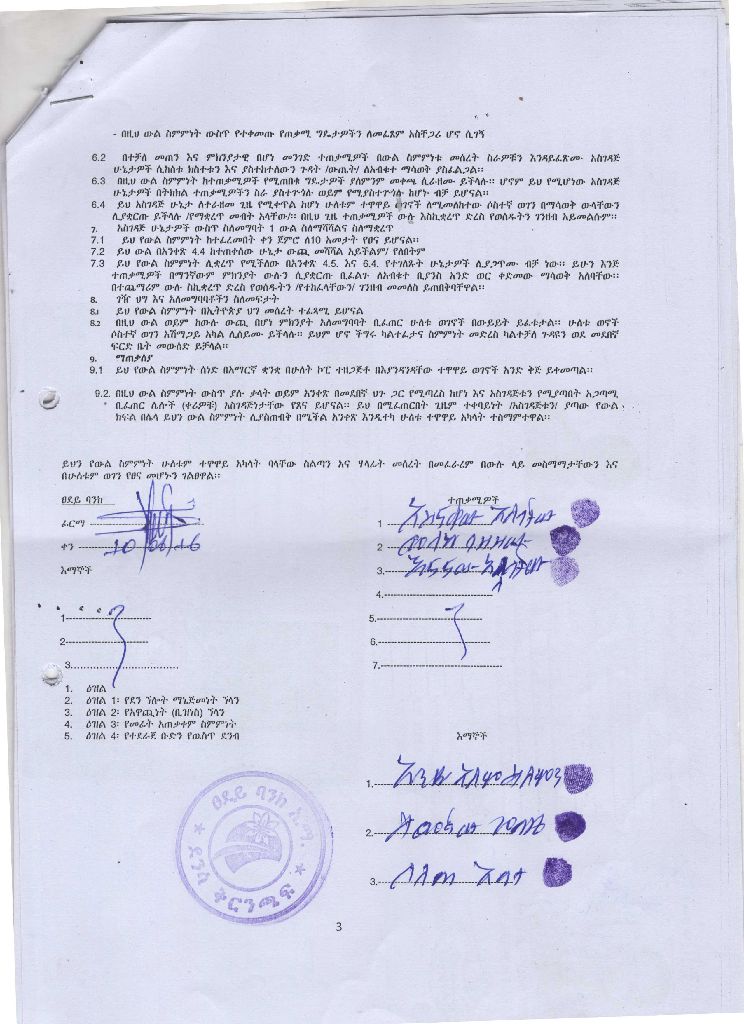 - በዚህ ውል ስምምነት ውስጥ የተቀመጡ የጠቃሚ ግዴታዎችን ለመፈጸም አስቸጋሪ ሆኖ ሲገኝ
6.2 በተቻለ መጠን እና ምክንያታዊ በሆነ መንገድ ተጠቃሚዎች በውል ስምምነቱ መሰረት ስራዎቹን እንዳይፈጽሙ አስገዳጅ
ሁኔታዎች ሲከሰቱ ክስተቱን እና ያስከተለውን ጉዳት /ውጤት/ ለአብቁተ ማሳወቅ ያስፈልጋል፡፡
6.3 በዚህ ውል ስምምነት ከተጠቃሚዎች የሚጠበቁ ግዴታዎች ያለምንም መቀጫ ሊራዘሙ ይችላሉ፡፡ ሆኖም ይህ የሚሆነው አስገዳጅ
ሁኔታዎች በትክክል ተጠቃሚዎችን ስራ ያስተጓጎለ ወይም የሚያስተጓጎል ከሆነ ብቻ ይሆናል፡፡
6.4 ይህ አስገዳጅ ሁኔታ ለተራዘመ ጊዜ የሚቀጥል ከሆነ ሁለቱም ተዋዋይ ወገኖች ለሚመለከተው ሶስተኛ ወገን በማሳወቅ ውላቸውን
ሊያቋርጡ ይችላሉ /የማቋረጥ መብት አላቸው/፡፡ በዚህ ጊዜ ተጠቃሚዎች ውሉ እስኪቋረጥ ድረስ የወሰዱትን ገንዘብ አይመልሱም፡፡
7. አስገዳጅ ሁኔታዎች ውስጥ ስለመግባት 1 ውል ስለማሻሻልና ስለማቋረጥ
7.1 ይህ የውል ስምምነት ከተፈረመበት ቀን ጀምሮ ለ10 አመታት የፀና ይሆናል፡፡
7.2 ይህ ውል በአንቀጽ 4.4 ከተጠቀሰው ሁኔታ ውጪ መሻሻል አይችልም/ የለበትም
7.3 ይህ የውል ስምምነት ሊቋረጥ የሚችለው በአንቀጽ 4.5. እና 6.4. የተገለጹት ሁኔታዎች ሊያጋጥሙ ብቻ ነው፡፡ ይሁን እንጅ
ተጠቃሚዎች በማንኛውም ምክንያት ውሉን ሊያቋርጡ ቢፈልጉ ለአብቁተ ቢያንስ አንድ ወር ቀድመው ማሳወቅ አለባቸው፡፡
በተጨማሪም ውሉ ስኪቋረጥ ድረስ የወሰዱትን /የተከፈላቸውን/ ገንዘብ መመለስ ይጠበቅባቸዋል፡፡
8. ገዥ ህግ እና አለመግባባቶችን ስለመፍታት
8.1 ይህ የውል ስምምነት በኢትዮጵያ ህግ መሰረት ተፈጻሚ ይሆናል
8.2 በዚህ ውል ወይም ከውሉ ውጪ በሆነ ምክንያት አለመግባባት ቢፈጠር ሁለቱ ወገኖች በውይይት ይፈቱታል፡፡ ሁለቱ ወኖች
ሶስተኛ ወገን አሸማጋይ አካል ሊሰይሙ ይችላሉ፡፡ ይህም ሆኖ ችግሩ ካልተፈታና ስምምነት መድረስ ካልተቻለ ጉዳዩን ወደ መደበኛ
ፍርድ ቤት መውሰድ ይቻላል፡፡
9. ማጠቃለያ
9.1 ይህ የውል ስምምነት ሰነድ በአማርኛ ቋንቋ በሁለት ኮፒ ተዘጋጅቶ በእያንዳንዳቸው ተዋዋይ ወገኖች አንድ ቅጅ ይቀመጣል፡፡
9.2. በዚህ ውል ስምምነት ውስጥ ያሉ ቃላት ወይም አንቀጽ በመደበኛ ህግ ጋር የሚጣረስ ከሆነ እና አስገዳጅቱን የሚያጣበት አጋጣሚ
ቢፈጠር ሌሎች (ቀሪዎቹ) አስገዳጅነታቸው የጸና ይሆናል፡፡ ይህ በሚፈጠርበት ጊዜም ተቀባይነት /አስገዳጅቱን/ ያጣው የውል
ክፍል በሌላ ይህን ውል ስምምነት ሊያስጠብቅ በሚችል አንቀጽ እንዲተካ ሁለቱ ተዋዋይ አካላት ተስማምተዋል፡፡
ይህን የውል ስምምነት ሁለቱም ተዋዋይ አካላት ባላቸው ስልጣን እና ሃላፊት መሰረት በመፈራረም በውሉ ላይ መስማማታቸውን እና
በሁለቱም ወገን የፀና መሆኑን ገልፀዋል፡፡
ፀደይ ባንክ ተጠቃሚዎች
ፊርማ
ቀን 20/06/16
1
2
3.
4.
እማኞች
1
2
3.
5.
6.
7.
1. ዕዝል
2. ዕዝል 1፡ የደን ኘሎት ማኔጅመነት ኘላን
3. ዕዝል 2፡ የአዋጪነት (ቢዝነስ) ኘላን
4. ዕዝል 3፡ የመሬት አጠቃቀም ስምምነት
5. ዕዝል 4፡ የተደራጀ ቡድን የዉስጥ ደንብ
እማኞች
1.
2.
3.
ፀደይ ባንክ አ.ማ.
3